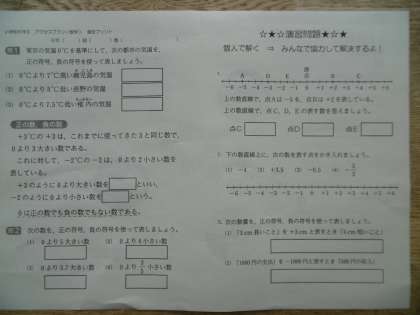 例1 東京の気温0℃を基準にして、次の都市の気温を、
正の符号、負の符号を使って表しましょう。
(1) 0℃より7℃高い鹿児島の気温
(2) 0℃より8℃低い長野の気温
(3) 0℃より7.5℃低い稚内の気温
正の数、負の数
+3℃の+3は、これまでに使ってきた3と同じ数で、
0より3大きい数である。
これに対して、−2℃の−2は、0より2小さい数を
表している。
+3のように0より大きい数を
といい、
−2のように0より小さい数を
という。
0は正の数でも負の数でもない数である。
例2 次の数を、正の符号、負の符号を使って表しましょう。
(1) 0より5大きい数
(2) 0より4小さい数
(3) 0より3.7大きい数
(4) 0より 小さい数
★☆★演習問題★☆★
個人で解く ⇒ みんなで協力して解決するよ!
上の数直線で、点Aは−5を、点Bは+2を表している。
上の数直線で、点C、D、Eの表す数を答えましょう。
点C
点D
点E
下の数直線上に、次の数を表す点をかき入れましょう。
(1) −4 (2) +3.5 (3) −0.5 (4)
次の数量を、正の符号、負の符号を使って表しましょう。
(1) 「3cm長いこと」を+3cmと表すとき「5cm短いこと」